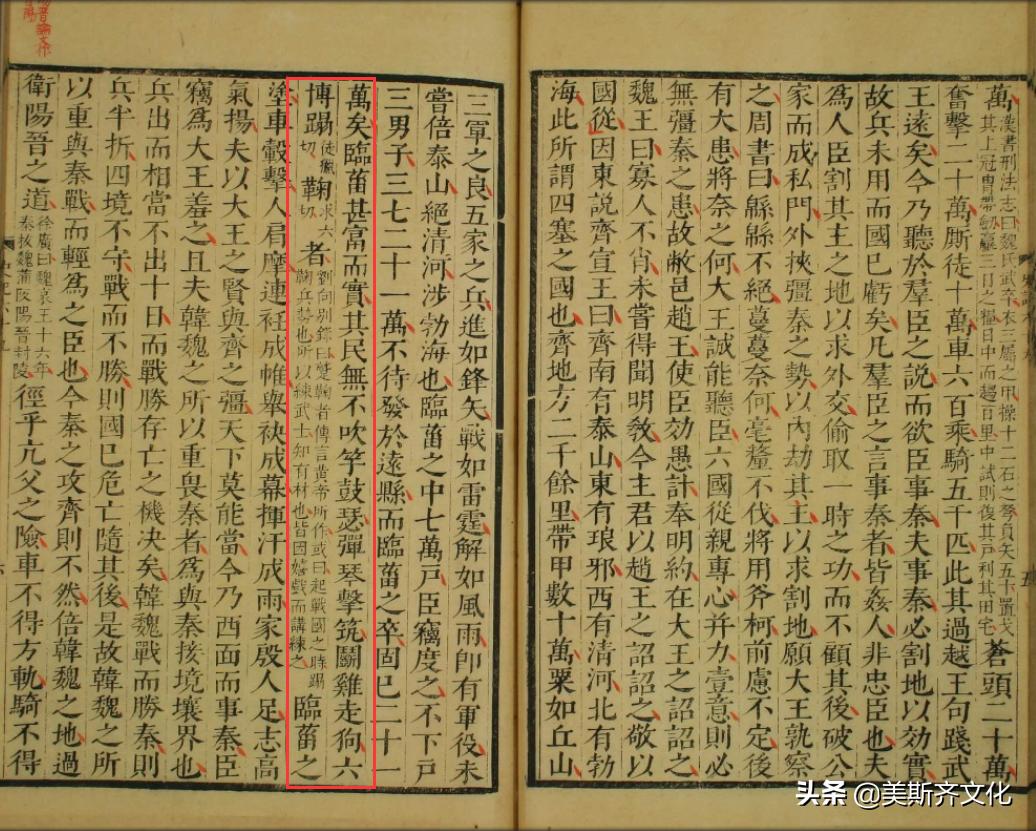 萬
漢書刑法志曰魏氏武卒衣三屬之甲操十二石之弩負矢五十置戈
其上冠冑帶劒贏三日之糧日中而趨百里中試則復其戶利其田宅
蒼頭二十萬
奮擊二十萬廝徒十萬車六百乘騎五千匹此其過越王句踐武
王遠矣今乃聽於羣臣之說而欲臣事秦夫事秦必割地以効實
故兵未用而國已虧矣凡羣臣之言事秦者皆姦人非忠臣也夫
爲人臣割其主之地以求外交偷取一時之功而不顧其後破公
家而成私門外挾彊秦之勢以內劫其主以求割地願大王孰察
之周書曰緜緜不絕蔓蔓奈何毫釐不伐將用斧柯前慮不定後
有大患將奈之何大王誠能聽臣六國從親專心并力壹意則必
無彊秦之患故敝邑趙王使臣効愚計奉明約在大王之詔詔之
魏王曰寡人不肖未嘗得聞明敎今主君以趙王之詔詔之敬以
國從因東說齊宣王曰齊南有泰山東有琅邪西有清河北有勃
海此所謂四塞之國也齊地方二千餘里帶甲數十萬粟如丘山
三軍之良五家之兵進如鋒矢戰如雷霆解如風雨卽有軍役未
嘗倍泰山絕清河涉勃海也臨菑之中七萬戶臣竊度之不下戶
三男子三七二十一萬不待發於遠縣而臨菑之卒固已二十一
萬矣臨菑甚富而實其民無不吹竽鼓瑟彈琴擊筑鬬雞走狗六
博蹋
徒臘
切
鞠
求六
切
者
劉向別錄曰蹵鞠者傳言黃帝所作或曰起戰國之時蹋
鞠兵勢也所以練武士知有材也皆因嬉戲而講練之
臨菑之
塗車轂擊人肩摩連衽成帷舉袂成幕揮汗成雨家殷人足志高
氣揚夫以大王之賢與齊之彊天下莫能當今乃西面而事秦臣
竊爲大王羞之且夫韓魏之所以重畏秦者爲與秦接境壤界也
兵出而相當不出十日而戰勝存亡之機决矣韓魏戰而勝秦則
兵半折四境不守戰而不勝則國已危亡隨其後是故韓魏之所
以重與秦戰而輕爲之臣也今秦之攻齊則不然倍韓魏之地過
衛陽晉之道
徐廣曰魏哀王十六年
秦拔魏蒲阪陽晉封陵
徑乎亢父之險車不得方軌騎不得
头条 @美斯齐文化